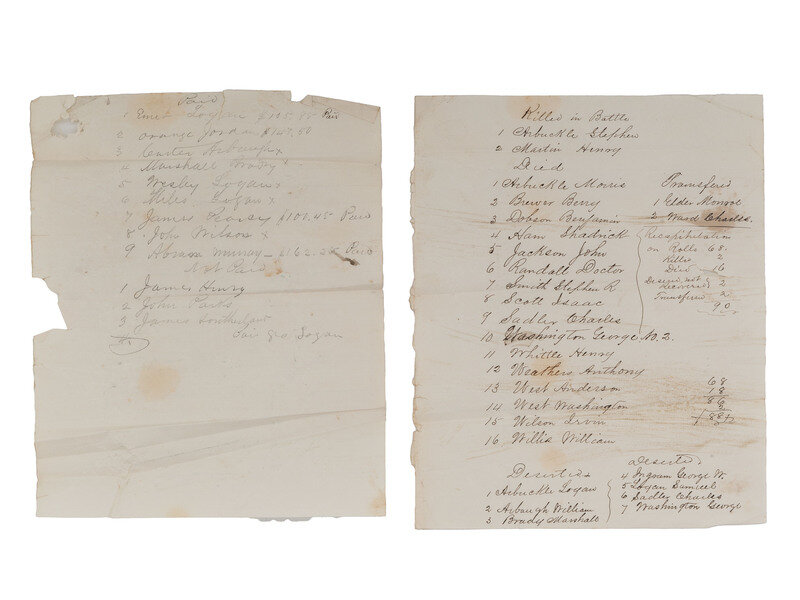 Paid
1 Logan $105.85 Paid
2 Orange Jordan $147.50
3 Carter Arbaugh x
4 Marshall Brady x
5 Wesley Logan x
6 Miles Logan x
7 James $101.45 Paid
8 John Wilson x
9 Abram Murray - $162. Paid
Not Paid
1 James Henry
2 John
3 James
Geo Logan
Killed in Battle
1 Arbuckle Stephen
2 Martin Henry
Died
1 Arbuckle Morris
2 Brewer Berry
3 Dobson Benjamin
4 Ham Shadrick
5 Jackson John
6 Randall Doctor
7 Smith Stephen R
8 Scott Isaac
9 Sadler Charles
10 Washington George No. 2.
11 Whittle Henry
12 Weathers Anthony
13 West Anderson
14 West Washington
15 Wilson Irvin
16 Willis William
Transfered
1 Elder Monroe
2 Ward Charles.
Recapitulation
on Rolls 68.
Killed 2
Died 16
Desered not 2
Transfered 2
90
68
18
86
2
88
Deserted
1 Arbuckle Logan
2 Arbaugh William
3 Brady Marshall
Deserted
4 Ingram George W.
5 Logan Sumicel
6 Sadley Charles
7 Washington George